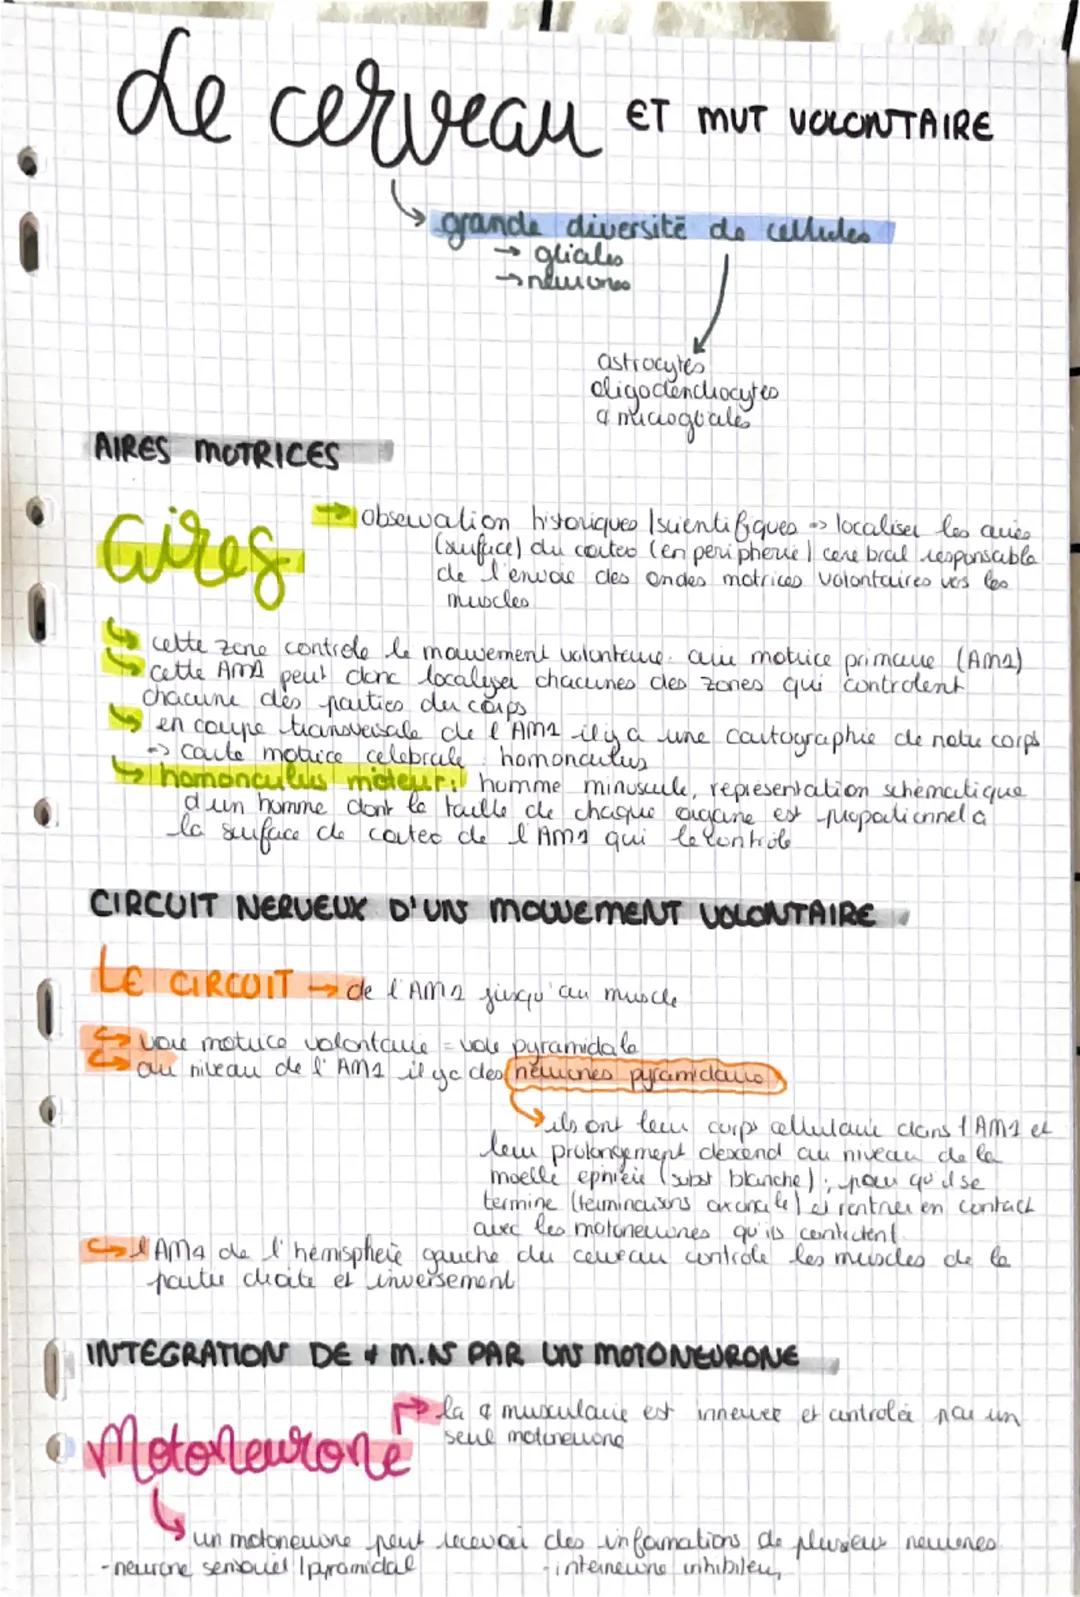 Le cerveau ET MUT VOLONTAIRE
→ grande diversité de cellules
→ gliales
→ neurones
astrocytes
oligodendrocytes
& microgliales
AIRES MOTRICES
aires → observation historiques / scientifiques => localiser les aires
(surface) du cortex (en périphérie) cérébral responsable
de l'envoie des ondes motrices volontaires vers les
muscles
↳ cette zone controle le mouvement volontaire. aire motrice primaire (AM1)
↳ cette AM1 peut donc localiser chacunes des zones qui controlent
chacune des parties du corps
↳ en coupe transversale de l'AM1 il y a une cartographie de notre corps
-> carte motrice celebrale homonculus
↳ homonculus moteur: homme minuscule, représentation schématique
d'un homme dont la taille de chaque organe est proportionnel à
la surface de cortex de l'AM1 qui le contrôle
CIRCUIT NERVEUX D'UN MOUVEMENT VOLONTAIRE
LE CIRCUIT → de l'AM1 jusqu'au muscle
↳ voie motrice volontaire = voie pyramidale
↳ au niveau de l'AM1 il y a des neurones pyramidaux
↳ ils ont leur corps cellulaire dans l'AM1 et
leur prolongement descend au niveau de la
moelle épinière (subst blanche); pour qu'il se
termine (terminaisons axonale) et rentrer en contact
avec les motoneurones qu'ils contictent
↳ l'AM1 de l'hémisphère gauche du cerveau controle les muscles de la
partie droite et inversement
INTEGRATION DE + M.N PAR UN MOTONEURONE
Motoneurone → la ¢ musculaire est innervée et controlée par un
seul motoneurone
↳ un motoneurone peut recevoir des informations de plusieur neurones
- neurone sensoriel / pyramidal - interneurone inhibiteur